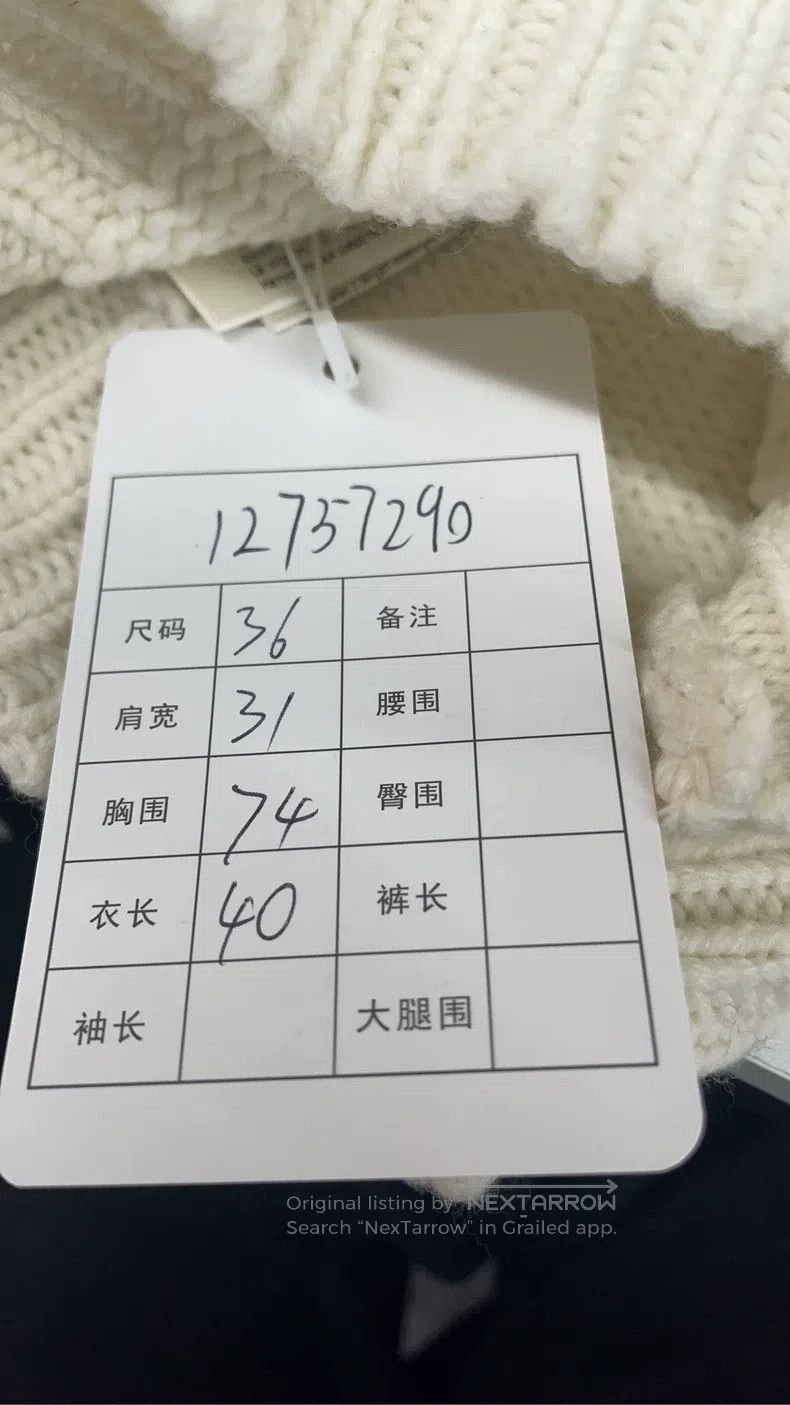 12757290
尺码 36 备注
肩宽 31 腰围
胸围 74 臀围
衣长 40 裤长
袖长 大腿围
Original listing by NEXTARROW
Search “NexTarrow” in Grailed app.